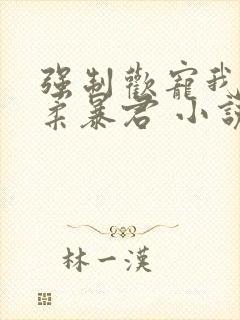 強制歡寵我
柔暴君 小説
林一漢